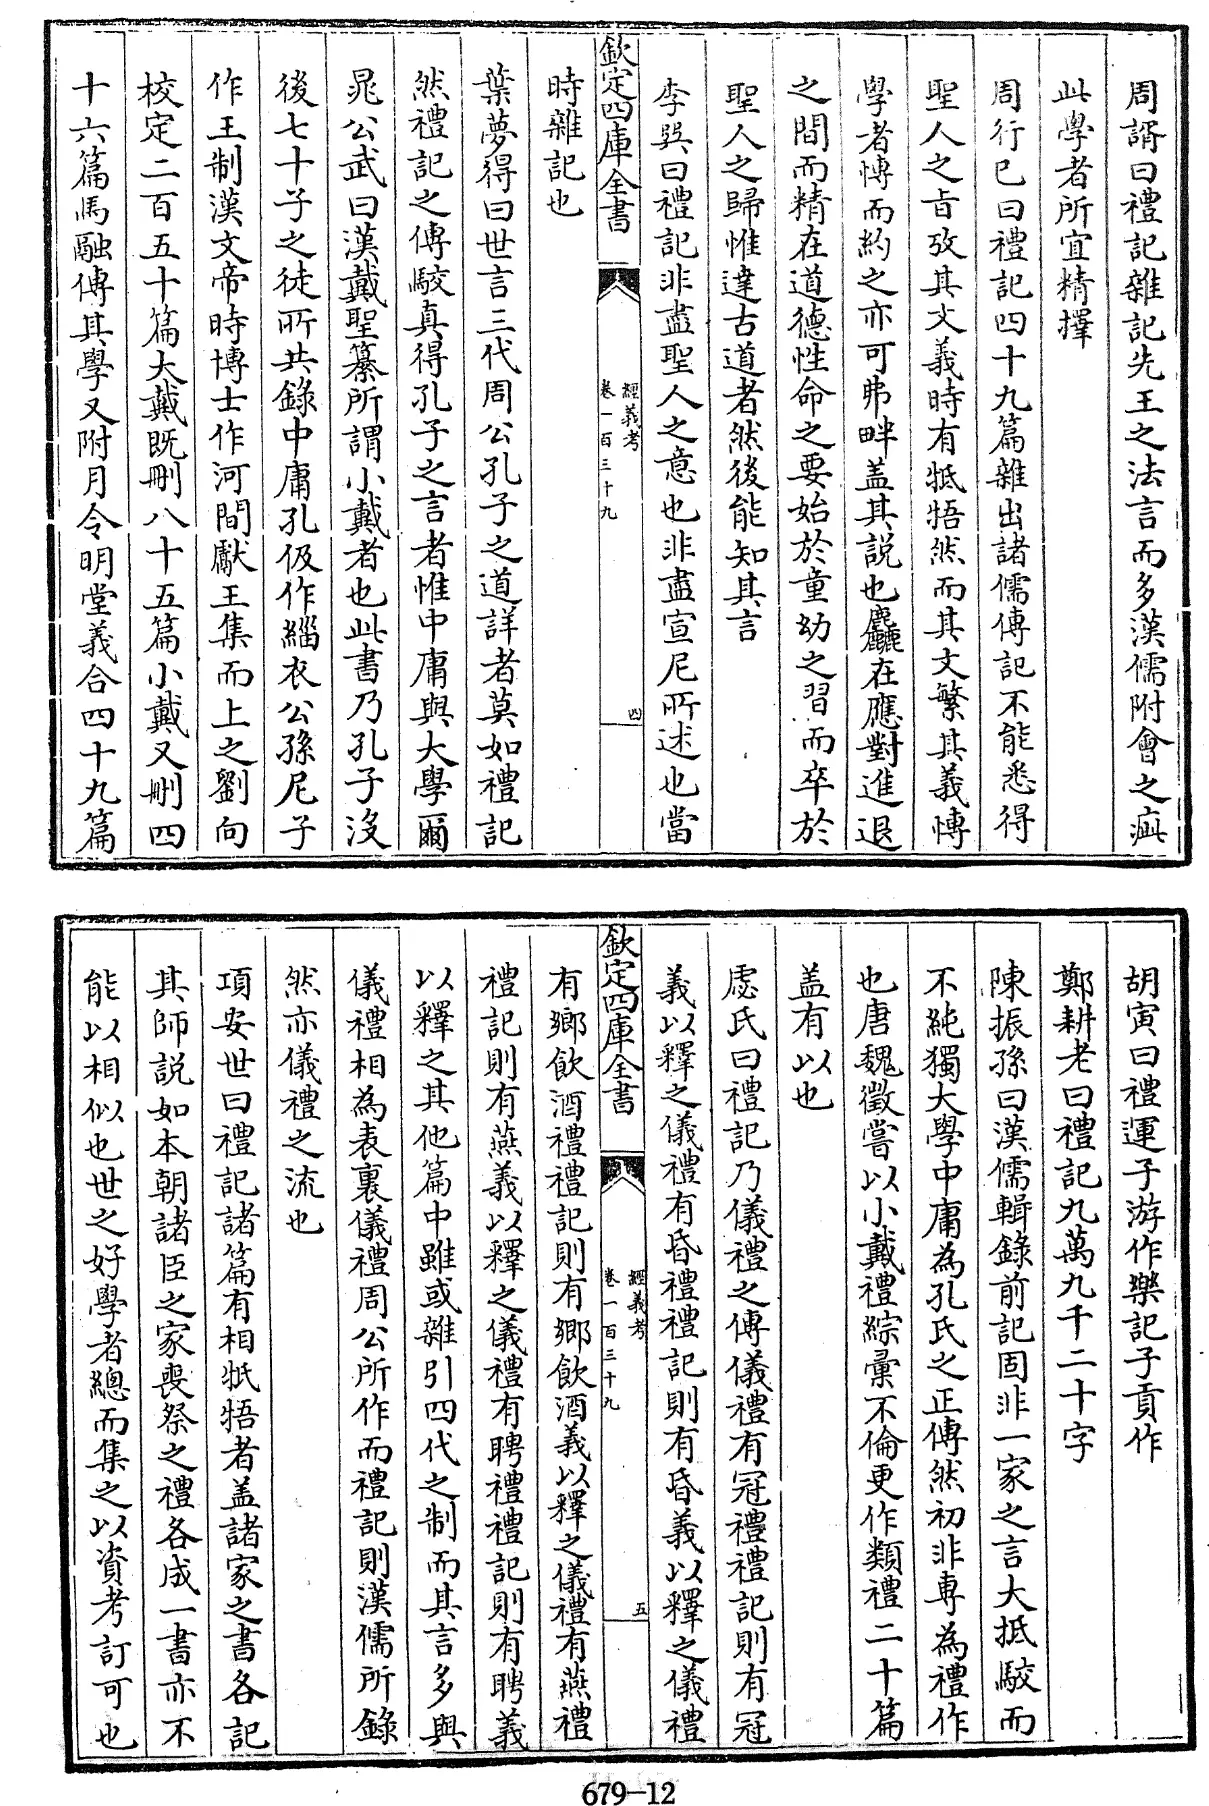 周諝曰禮記雜記先王之法言而多漢儒附會之疵
此學者所宜精擇
周行已曰禮記四十九篇雜出諸儒傳記不能悉得
聖人之旨攷其文義時有牴牾然而其文繁其義博
學者博而約之亦可弗畔盖其説也麤在應對進退
之間而精在道德性命之要始於童幼之習而卒於
聖人之歸惟達古道者然後能知其言
李㢲曰禮記非盡聖人之意也非盡宣尼所述也當
欽定四庫全書
經義考
卷一百三十九
四
時雜記也
葉夢得曰世言三代周公孔子之道詳者莫如禮記
然禮記之傳駮真得孔子之言者惟中庸與大學爾
晁公武曰漢戴聖纂所謂小戴者也此書乃孔子沒
後七十子之徒所共錄中庸孔伋作緇衣公孫尼子
作王制漢文帝時博士作河間獻王集而上之劉向
校定二百五十篇大戴既刪八十五篇小戴又刪四
十六篇馬融傳其學又附月令明堂義合四十九篇
胡寅曰禮運子游作樂記子貢作
鄭耕老曰禮記九萬九千二十字
陳振孫曰漢儒輯錄前記固非一家之言大抵駮而
不純獨大學中庸為孔氏之正傳然初非專為禮作
也唐魏徵嘗以小戴禮綜彙不倫更作類禮二十篇
盖有以也
虙氏曰禮記乃儀禮之傳儀禮有冠禮禮記則有冠
義以釋之儀禮有昏禮禮記則有昏義以釋之儀禮
欽定四庫全書
經義考
卷一百三十九
五
有鄉飲酒禮禮記則有鄉飲酒義以釋之儀禮有燕禮
禮記則有燕義以釋之儀禮有聘禮禮記則有聘義
以釋之其他篇中雖或雜引四代之制而其言多與
儀禮相為表裏儀禮周公所作而禮記則漢儒所錄
然亦儀禮之流也
項安世曰禮記諸篇有相牴牾者盖諸家之書各記
其師説如本朝諸臣之家喪祭之禮各成一書亦不
能以相似也世之好學者總而集之以資考訂可也
679-12